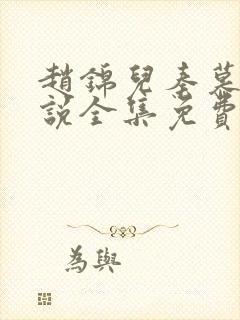 趙錦兒秦慕
說全集免費
為與